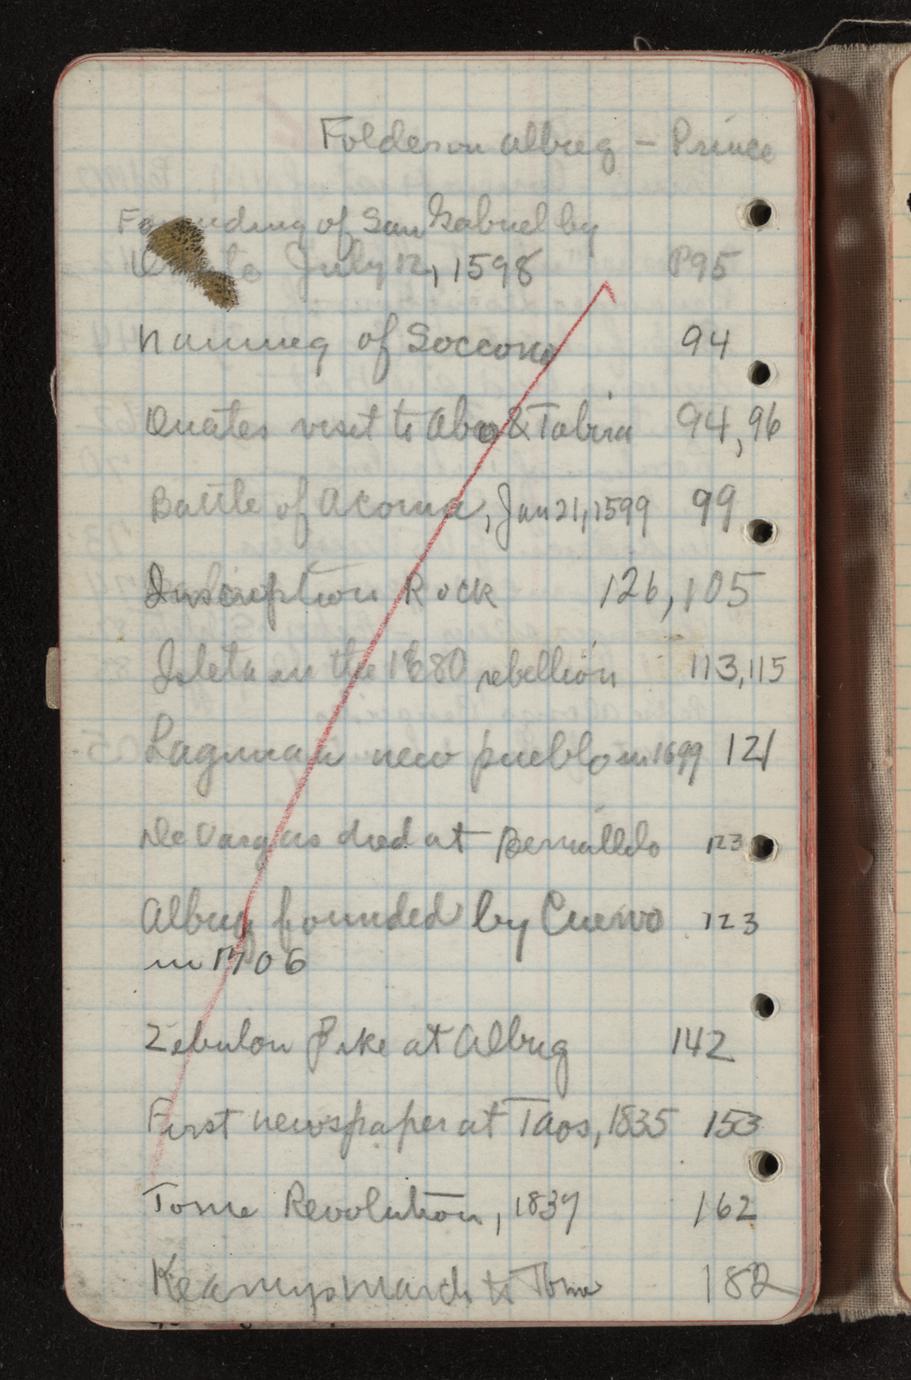 Folder on Albuq - Prince
Founding of San Gabriel by
Onate July 12, 1598 P95
Naming of Soccorro 94
Onates visit to Abo & Tabira 94, 96
Battle of Acoma, Jan 21, 1599 99
Inscription Rock 126, 105
Isleta in the 1680 rebellion 113, 115
Laguna a new pueblo in 1699 121
De Vargas died at Bernalillo 123
Albuq founded by Cuervo 123
in 1706
Zebulon Pike at Albuq 142
First newspaper at Taos, 1835 153
Tome Revolution, 1837 162
Kearnys march to Tome 182